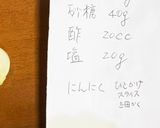 砂糖 40g
酢 20cc
塩 20g
にんにく ひとかけ
スライス
3日かく